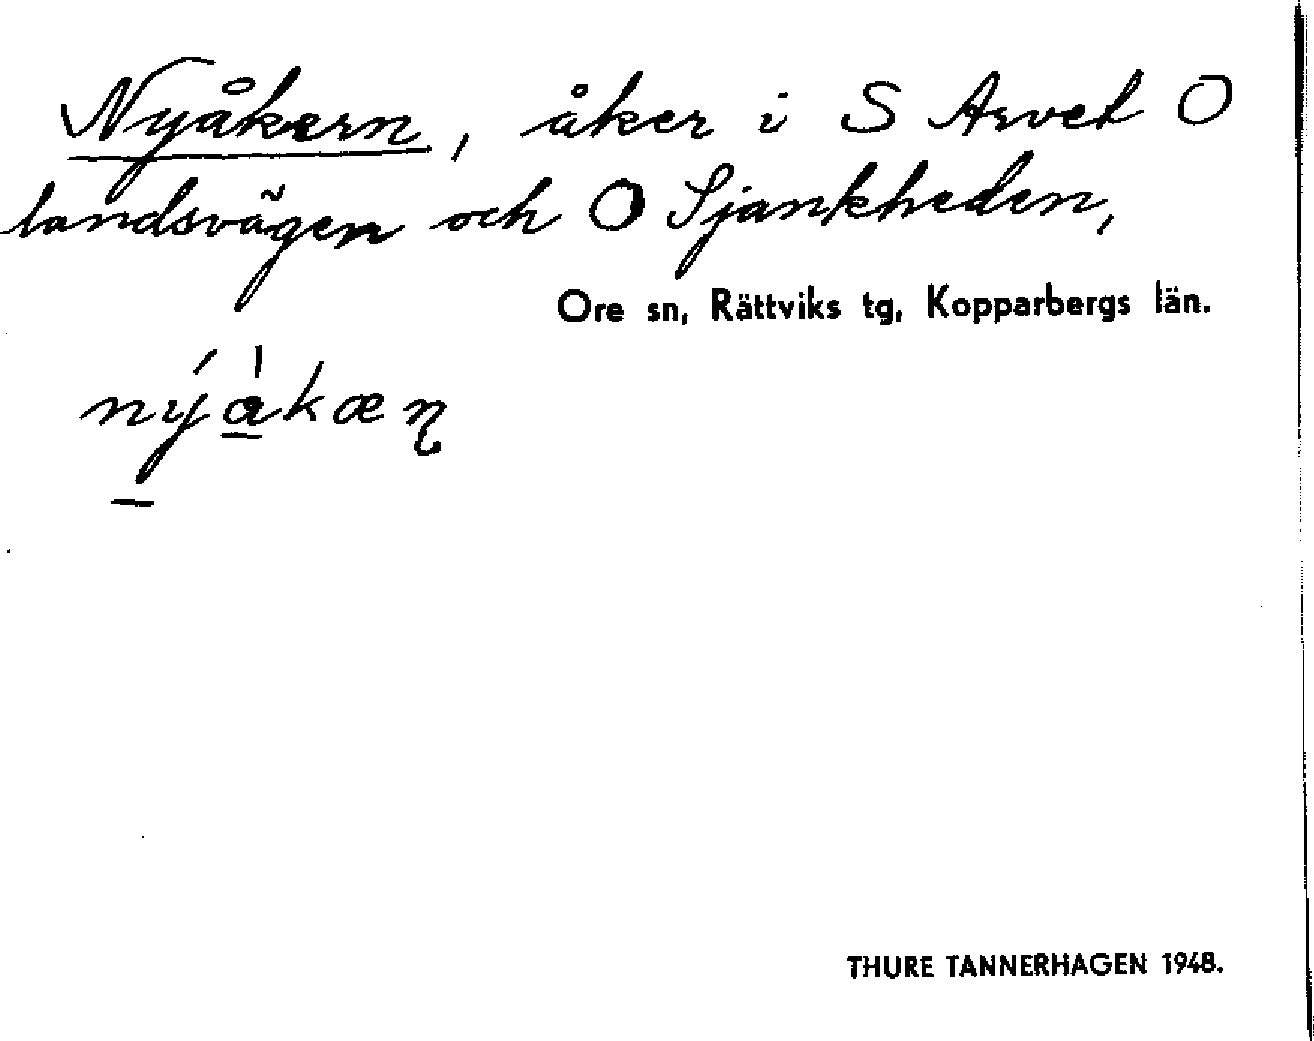 Nyåkern, åker i S Arvet O
landsvägen och O Sjankheden,
Ore sn, Rättviks tg, Kopparbergs län.
nýa�lkæɳ
THURE TANNERHAGEN 1948.